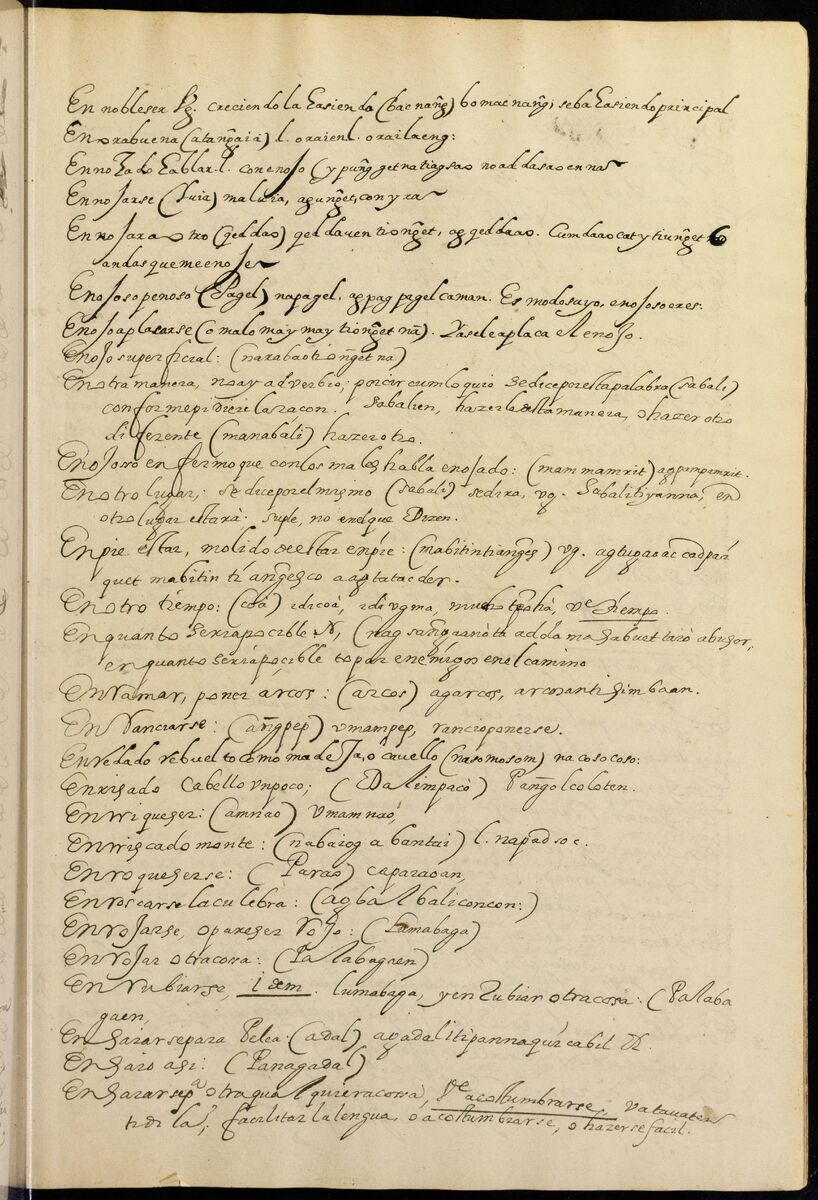 En nobleser Vg. creciendo la hasienda (bacnang̃) bomacnang̃, seba hasiendo principal
En orabuena (atang̃aia) l. oraienl. orailaeng:
En nohado hablar. l. con enojo (y pung̃getnatiagsao no addasao en na
En nojarse (luia) maluia, agung̃et, con yra
En nojar a otro (qeddao) qeddaventiong̃et, ag qeddaao. Cumdaao cat y tiung̃et
andas que me enoje
Enojoso penoso (Pagel) napagel, ag pag pagel caman. Es modo suyo, enojoso eres:
Enojo aplacarse (o malo may may tiong̃et nã). Yasele aplaca el enojo.
Enojo superficial: (narabaotiong̃et na)
En otra manera, no ay adverbio; por circumloquio se dice por esta palabra (sabali)
conforme pidiere la racon. Sabalien, hazerlo desta manera, o hazer otro
diferente (manabali) hazer otro.
Enojoso enfermo que con los males habla enojado: (mammamrit) ag pampamrit.
En otro lugar: se dice por el mismo (sabali) sedira, vg. Sabalitiyanna, en
otro lugar estarà: suple, no en el que Dizen.
En pie estar, molido de estar en pie: (mabitintiang̃es) vg. agtugaoac cadpai
quet mabitin ti ang̃esco a agtatacder.
En otro tiempo: (coà) idicoà, idi ugma, mucho tpo hà, Ve tiempo.
En quanto seria posible N, (nagsang̃aanòta adda masabuet taio abusor,
en quanto seria posible topar enemigos en el camino
Enramar, poner arcos: (arcos) agarcos, arcosanti simbaan.
En Ranciarse: (ang̃pep) umampep, rancioponerse.
Enredado rebuelto como madeja, o cavello (nasomosom) na coso coso:
Enrisado Cabello un poco; (Dalimpacò) Pang̃olcoloten.
Enrriqueser: (amnao) Umamnaò,
Enrriscado monte: (nabaiog a bantai) l. napadsoc.
Enroqueserse: (Parao) caparaoan,
Enroscarse la culebra: (agbalbaliconcon:)
Enrojarse, o pareser Rojo: (Lamabaga)
Enrojar otra cosa: (Palabagaen)
Enrrubiarse, idem. lumabaga, y enrubiar otra cosa: (Palaba
gaen,
Ensaiarse para Pelea: (adal) agadalitipannaquicabil &.
Ensaio asi: (Panagadal)
Ensaiarse pa otra qualquiera cosa, Ve acostumbrarse,
facilitar la lengua, o acostumbrarse, o hazerse facil.